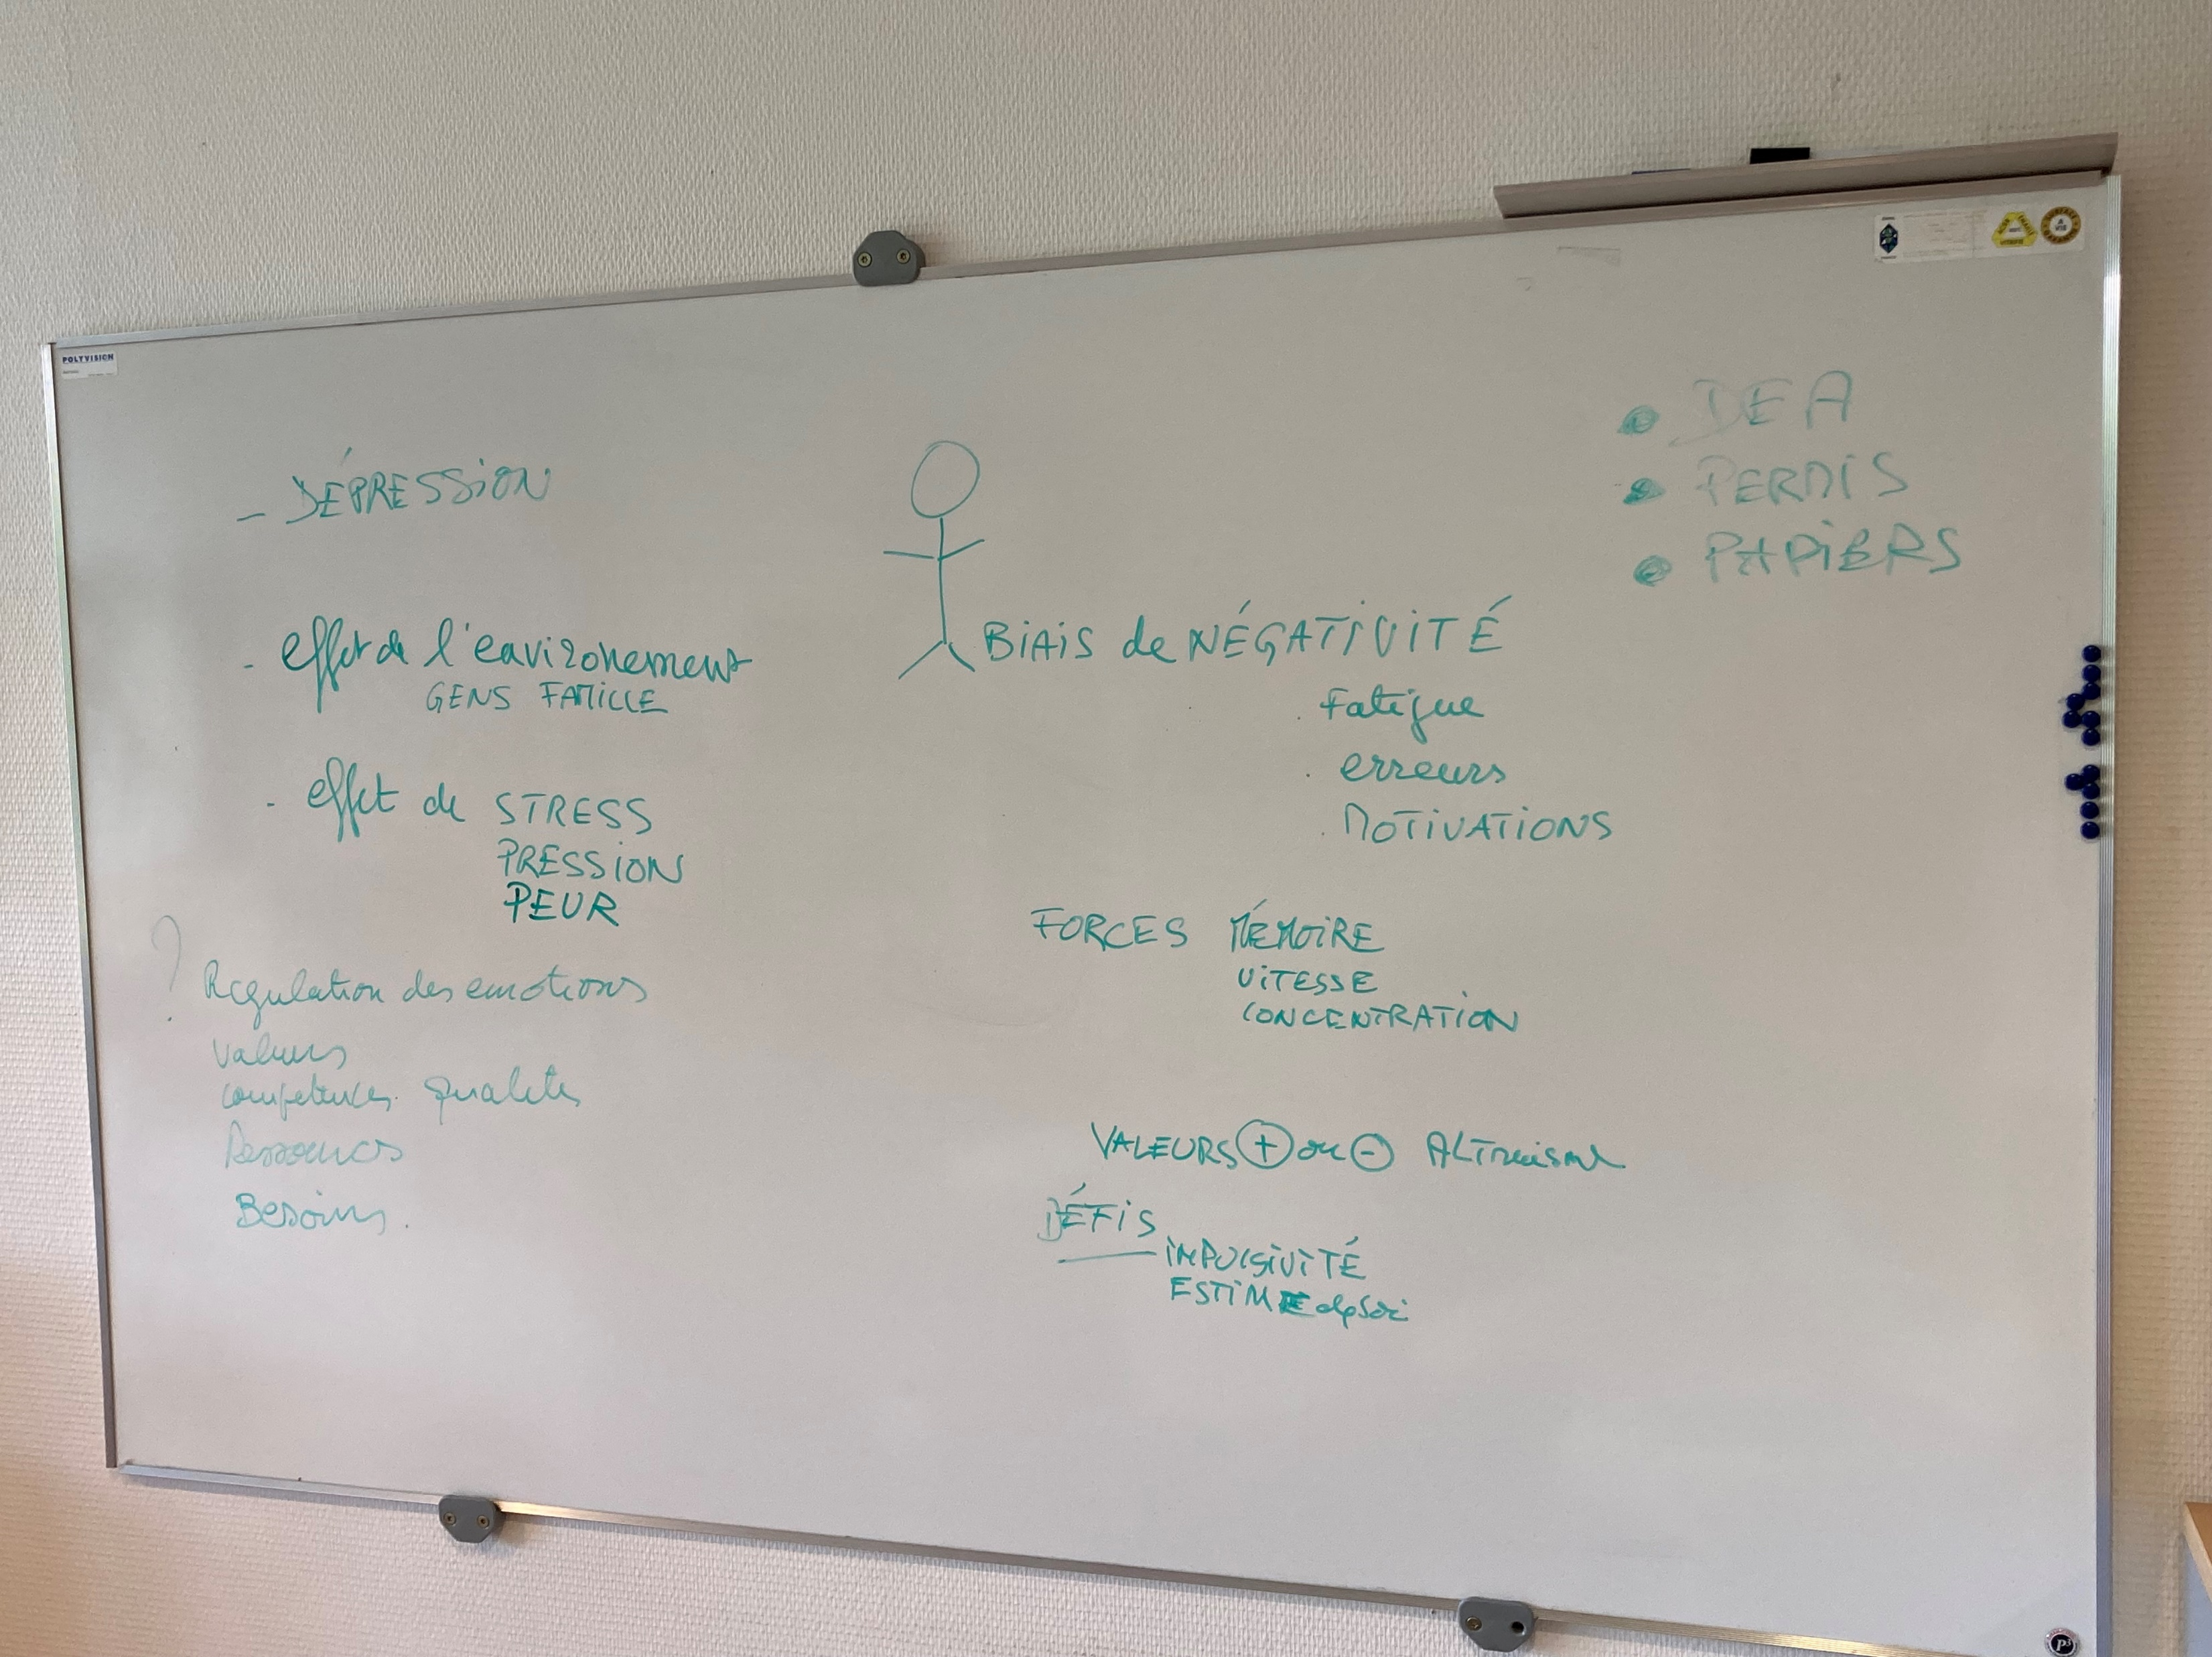 POLYVISION
- DÉPRESSION
- effet de l'environement
GENS FAMILLE
- effet de STRESS
PRESSION
PEUR
? Regulation des emotions
Valeurs
competences qualités
Ressources
Besoins.
BIAIS de NÉGATIVITÉ
. Fatigue
. erreurs
. MOTIVATIONS
FORCES MÉMOIRE
VITESSE
CONCENTRATION
VALEURS + ou - ALTruisme
DÉFIS
IMPULSIVITÉ
ESTIME de soi
• DEA
• PERMIS
• PAPIERS